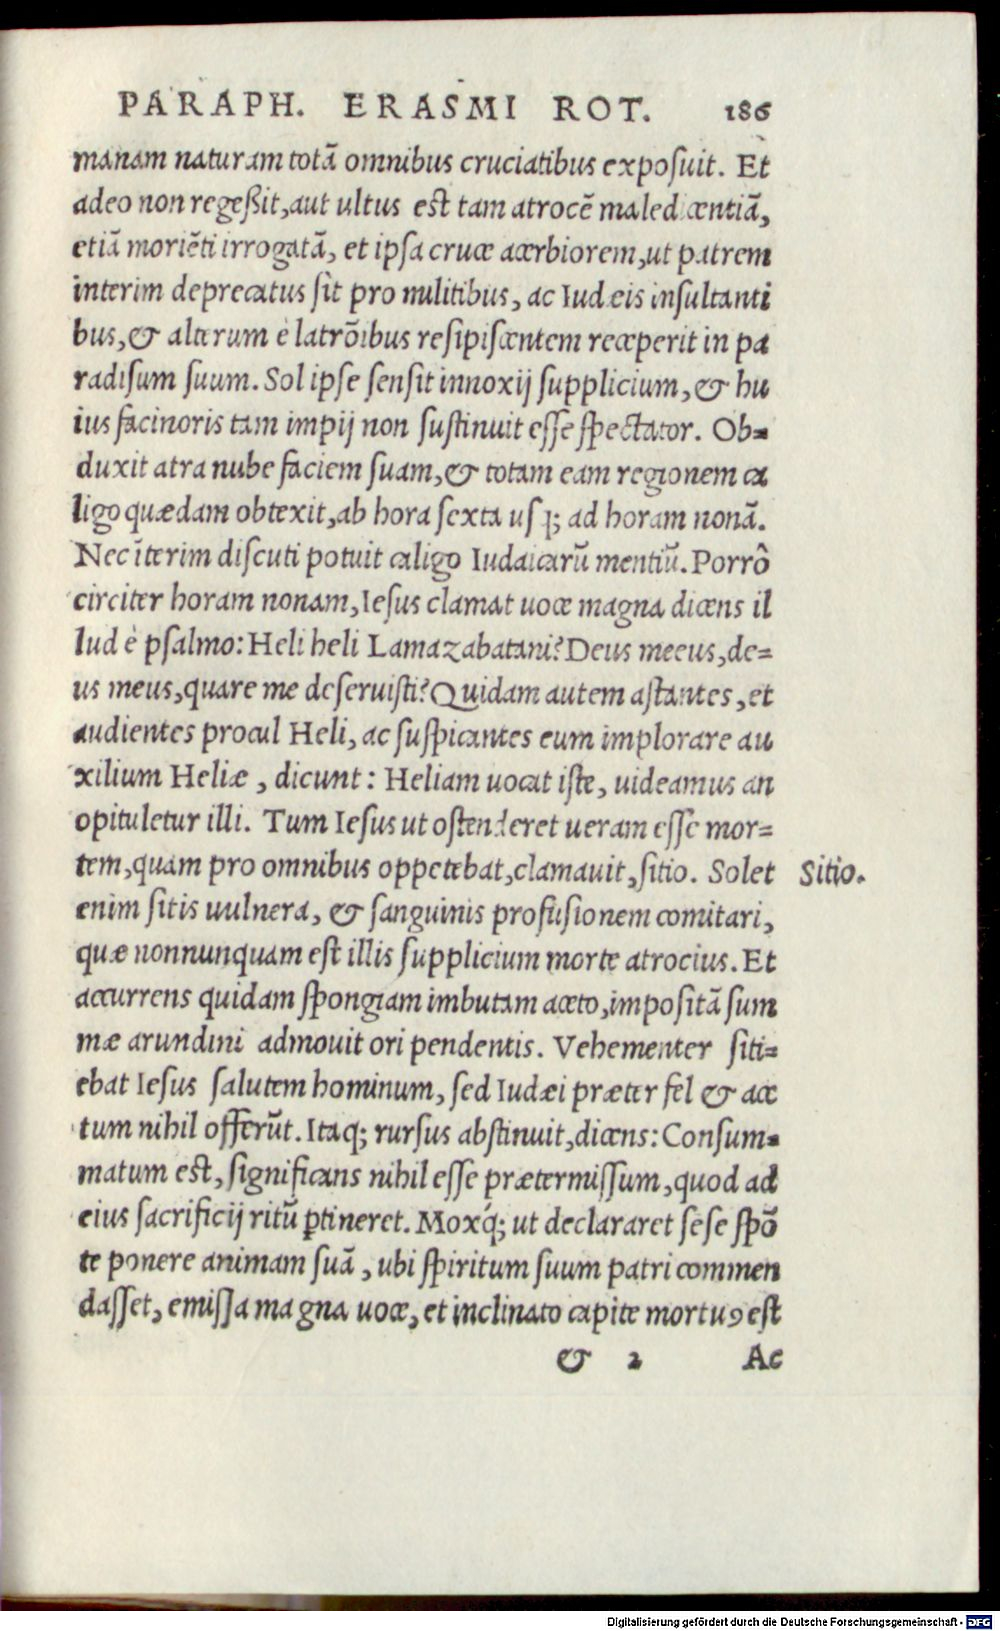 PARAPH. ERASMI ROT. 186
manam naturam totā omnibus cruciatibus exposuit. Et
adeo non regeßit, aut ultus est tam atrocē maledicentiā,
etiā moriēti irrogatā, et ipsa cruce acerbiorem, ut patrem
interim deprecatus sit pro militibus, ac Iudæis insultanti
bus, & alterum è latrōibus resipiscentem receperit in pa
radisum suum. Sol ipse sensit innoxij supplicium, & hu
ius facinoris tam impij non sustinuit esse spectator. Ob=
duxit atra nube faciem suam, & totam eam regionem ca
ligo quædam obtexit, ab hora sexta usq; ad horam nonā.
Nec īterim discuti potuit caligo Iudaicarū mentiū. Porrô
circiter horam nonam, Iesus clamat uoce magna dicens il
lud è psalmo: Heli heli Lamazabatani? Deus meeus, de=
us meus, quare me deseruisti? Quidam autem astantes, et
audientes procul Heli, ac suspicantes eum implorare au
xilium Heliæ, dicunt: Heliam uocat iste, uideamus an
opituletur illi. Tum Iesus ut ostenderet ueram esse mor=
tem, quam pro omnibus oppetebat, clamauit, sitio. Solet
Sitio.
enim sitis uulnera, & sanguinis profusionem comitari,
quæ nonnunquam est illis supplicium morte atrocius. Et
accurrens quidam spongiam imbutam aceto, impositā sum
mæ arundini admouit ori pendentis. Vehementer siti=
ebat Iesus salutem hominum, sed Iudæi præter fel & ace
tum nihil offerūt. Itaq; rursus abstinuit, dicens: Consum=
matum est, significans nihil esse prætermissum, quod ad
eius sacrificij ritū ꝑtineret. Moxq́; ut declararet sese spō
te ponere animam suā, ubi spiritum suum patri commen
dasset, emissa magna uoce, et inclinato capite mortuꝯ est
& 2 Ac
Digitalisierung gefördert durch die Deutsche Forschungsgemeinschaft - DFG